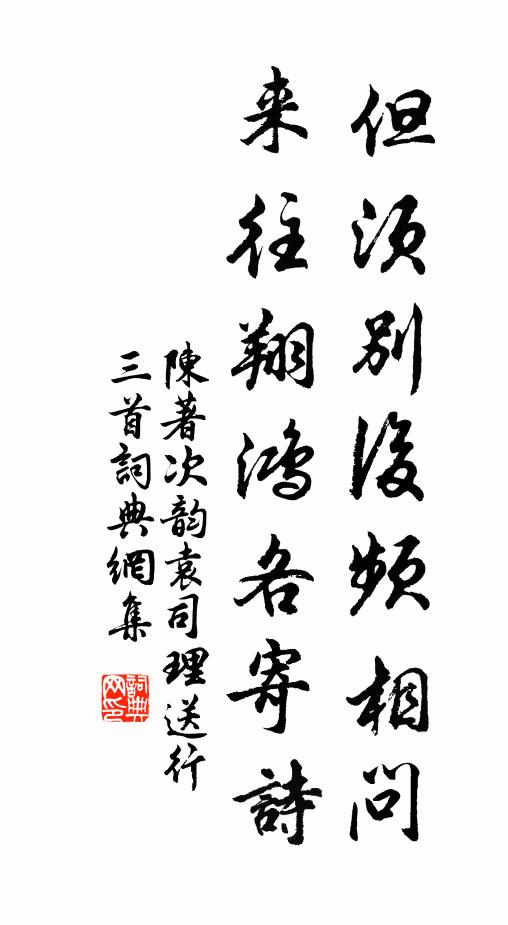 但須別後頻相問
来往翔鴻各寄詩
陳著次韵袁司理送行
三首詞典網集
詞典网印